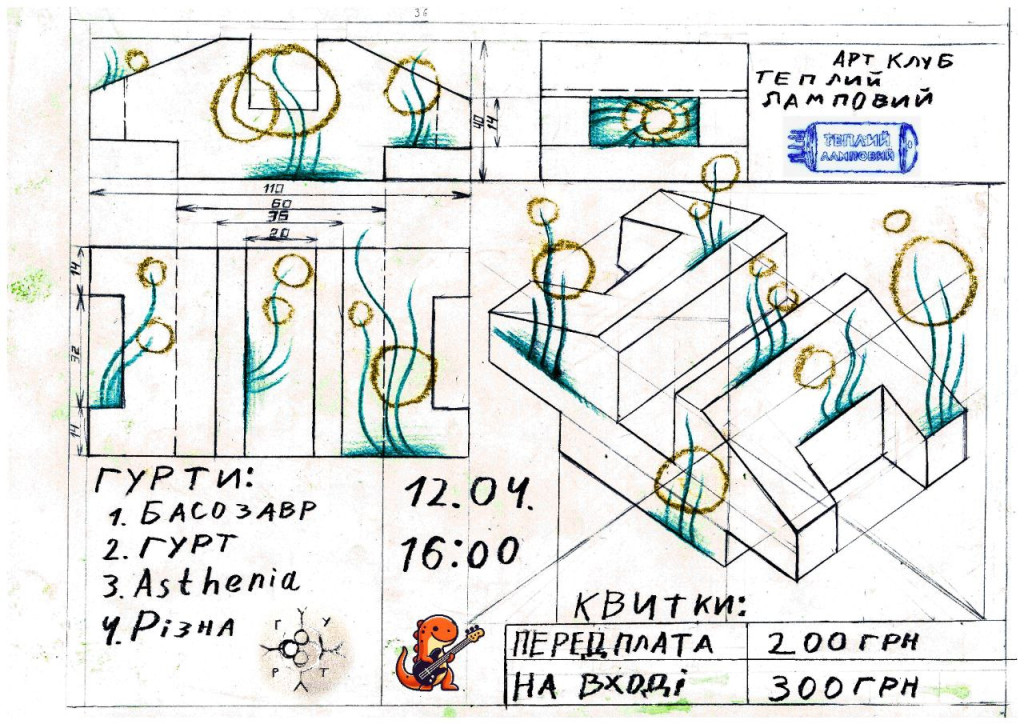 36
АРТ КЛУБ
ТЕПЛИЙ
ЛАМПОВИЙ
ТЕПЛИЙ
ЛАМПОВИЙ
40
14
110
60
36
20
14
32
14
ГУРТИ:
1. БАСОЗАВР
2. ГУРТ
3. Asthenia
4. Різна
ГУРТ
12.04.
16:00
КВИТКИ:
ПЕРЕДПЛАТА 200 ГРН
НА ВХОДІ 300 ГРН